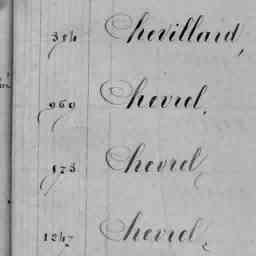 354 Chevillard,
969 Chevrel,
173 Chevrel,
1247 Chevrel,